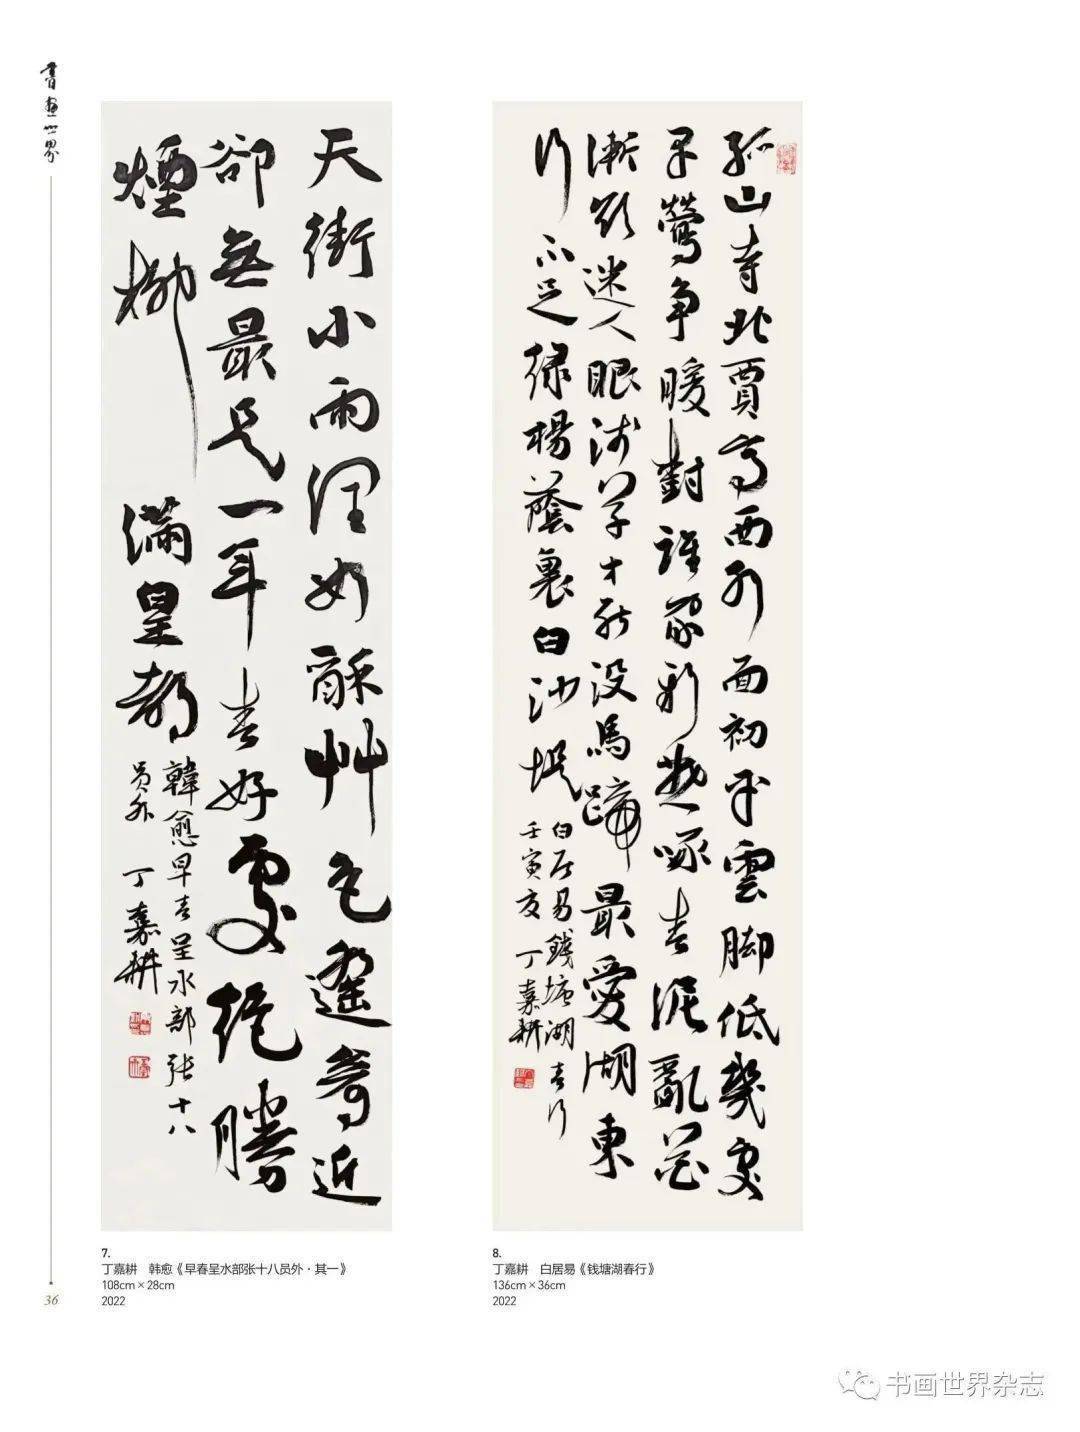 書畫世界
天街小雨潤如酥艸色遙看近
卻無最是一年春好處絕勝
煙柳 滿皇都
韓愈早春呈水部張十八
員外 丁嘉耕
孤山寺北賈亭西水面初平雲脚低幾處
早鶯争暖樹誰家新燕啄春泥亂花
漸欲迷人眼浅草才能没馬蹄最愛湖東
行不足绿楊蔭裏白沙堤
白居易錢塘湖春行
壬寅夏 丁嘉耕
7.
丁嘉耕 韩愈《早春呈水部张十八员外·其一》
108cm×28cm
2022
8.
丁嘉耕 白居易《钱塘湖春行》
136cm×36cm
2022
36
书画世界杂志